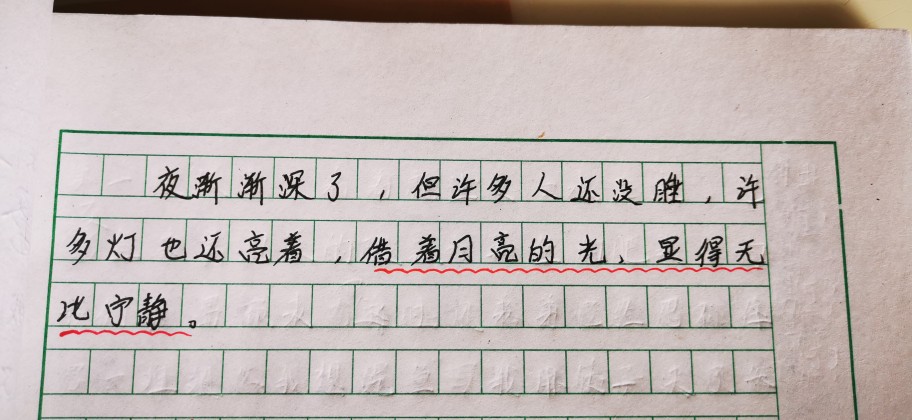 夜渐渐深了，但许多人还没睡，许
多灯也还亮着，借着月亮的光、显得无
比宁静。